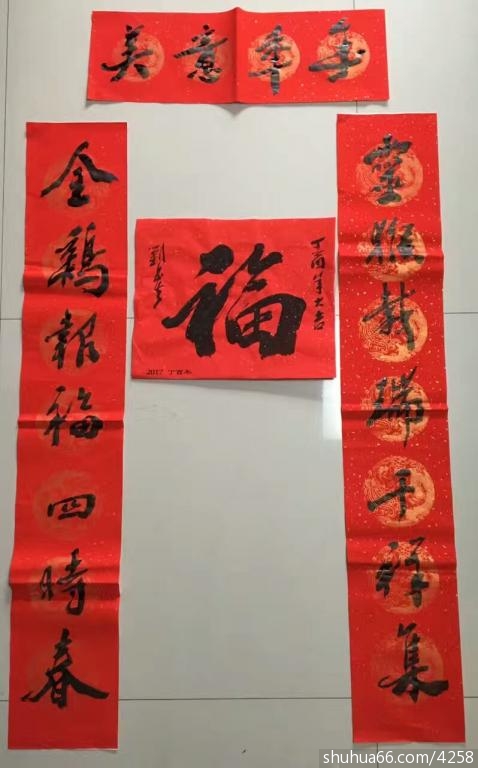 美意延年
靈猴瑞千祥集
金鷄報福四時春
丁酉年大吉
福
劉
2017 丁酉年
shuhua66.com/4258